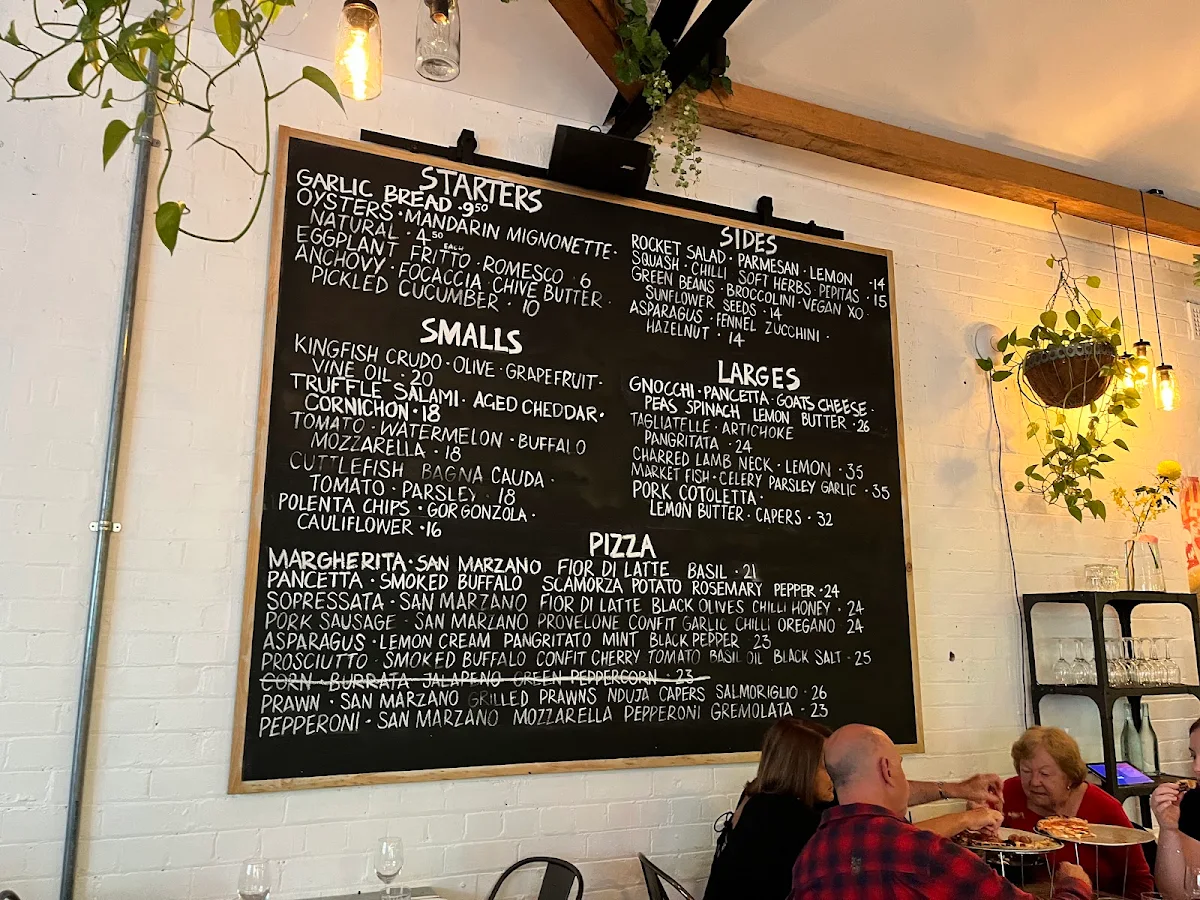 STARTERS
GARLIC BREAD · 9.50
OYSTERS · MANDARIN MIGNONETTE ·
NATURAL · 4.50 EACH
EGGPLANT FRITTO · ROMESCO · 6
ANCHOVY · FOCACCIA CHIVE BUTTER ·
PICKLED CUCUMBER · 10
SMALLS
KINGFISH CRUDO · OLIVE · GRAPEFRUIT ·
VINE OIL · 20
TRUFFLE SALAMI · AGED CHEDDAR ·
CORNICHON · 18
TOMATO · WATERMELON · BUFFALO
MOZZARELLA · 18
CUTTLEFISH BAGNA CAUDA ·
TOMATO · PARSLEY 18
POLENTA CHIPS · GORGONZOLA ·
CAULIFLOWER · 16
SIDES
ROCKET SALAD · PARMESAN · LEMON · 14
SQUASH · CHILLI SOFT HERBS · PEPITAS · 15
GREEN BEANS · BROCCOLINI · VEGAN XO ·
SUNFLOWER SEEDS · 14
ASPARAGUS · FENNEL ZUCCHINI ·
HAZELNUT · 14
LARGES
GNOCCHI · PANCETTA · GOATS CHEESE ·
PEAS SPINACH LEMON BUTTER · 26
TAGLIATELLE · ARTICHOKE
PANGRITATA · 24
CHARRED LAMB NECK · LEMON · 35
MARKET FISH · CELERY PARSLEY GARLIC · 35
PORK COTOLETTA ·
LEMON BUTTER · CAPERS · 32
PIZZA
MARGHERITA · SAN MARZANO FIOR DI LATTE BASIL · 21
PANCETTA · SMOKED BUFFALO SCAMORZA POTATO ROSEMARY PEPPER · 24
SOPRESSATA · SAN MARZANO FIOR DI LATTE BLACK OLIVES CHILLI HONEY · 24
PORK SAUSAGE · SAN MARZANO PROVELONE CONFIT GARLIC CHILLI OREGANO 24
ASPARAGUS · LEMON CREAM PANGRITATO MINT BLACK PEPPER 23
PROSCIUTTO · SMOKED BUFFALO CONFIT CHERRY TOMATO BASIL OIL BLACK SALT · 25
CORN · BURRATA JALAPENO GREEN PEPPERCORN · 23
PRAWN · SAN MARZANO GRILLED PRAWNS NDUJA CAPERS SALMORIGLIO · 26
PEPPERONI · SAN MARZANO MOZZARELLA PEPPERONI GREMOLATA · 23